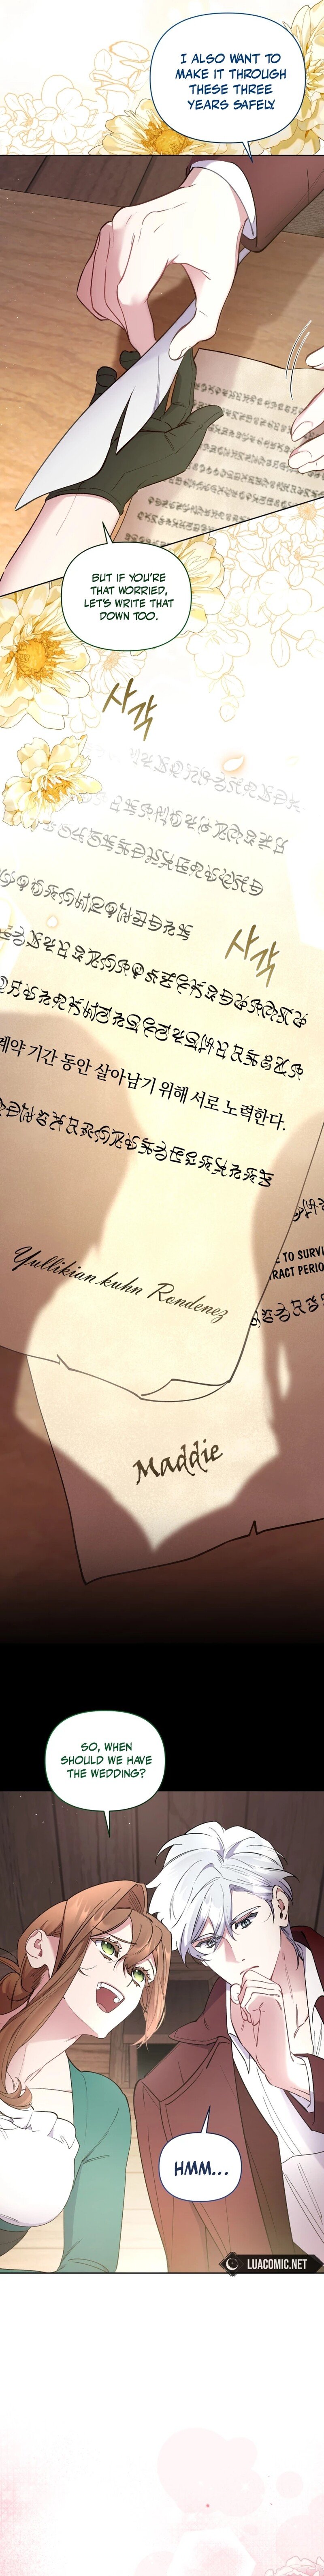 I ALSO WANT TO
MAKE IT THROUGH
THESE THREE
YEARS SAFELY.
BUT IF YOU'RE
THAT WORRIED,
LET'S WRITE THAT
DOWN TOO.
사각
사각
계약 기간 동안 살아남기 위해 서로 노력한다.
TO SURVI
RACT PERIO
Yullikian kuhn Rondenez
Maddie
SO, WHEN
SHOULD WE HAVE
THE WEDDING?
HMM...
LUACOMIC.NET